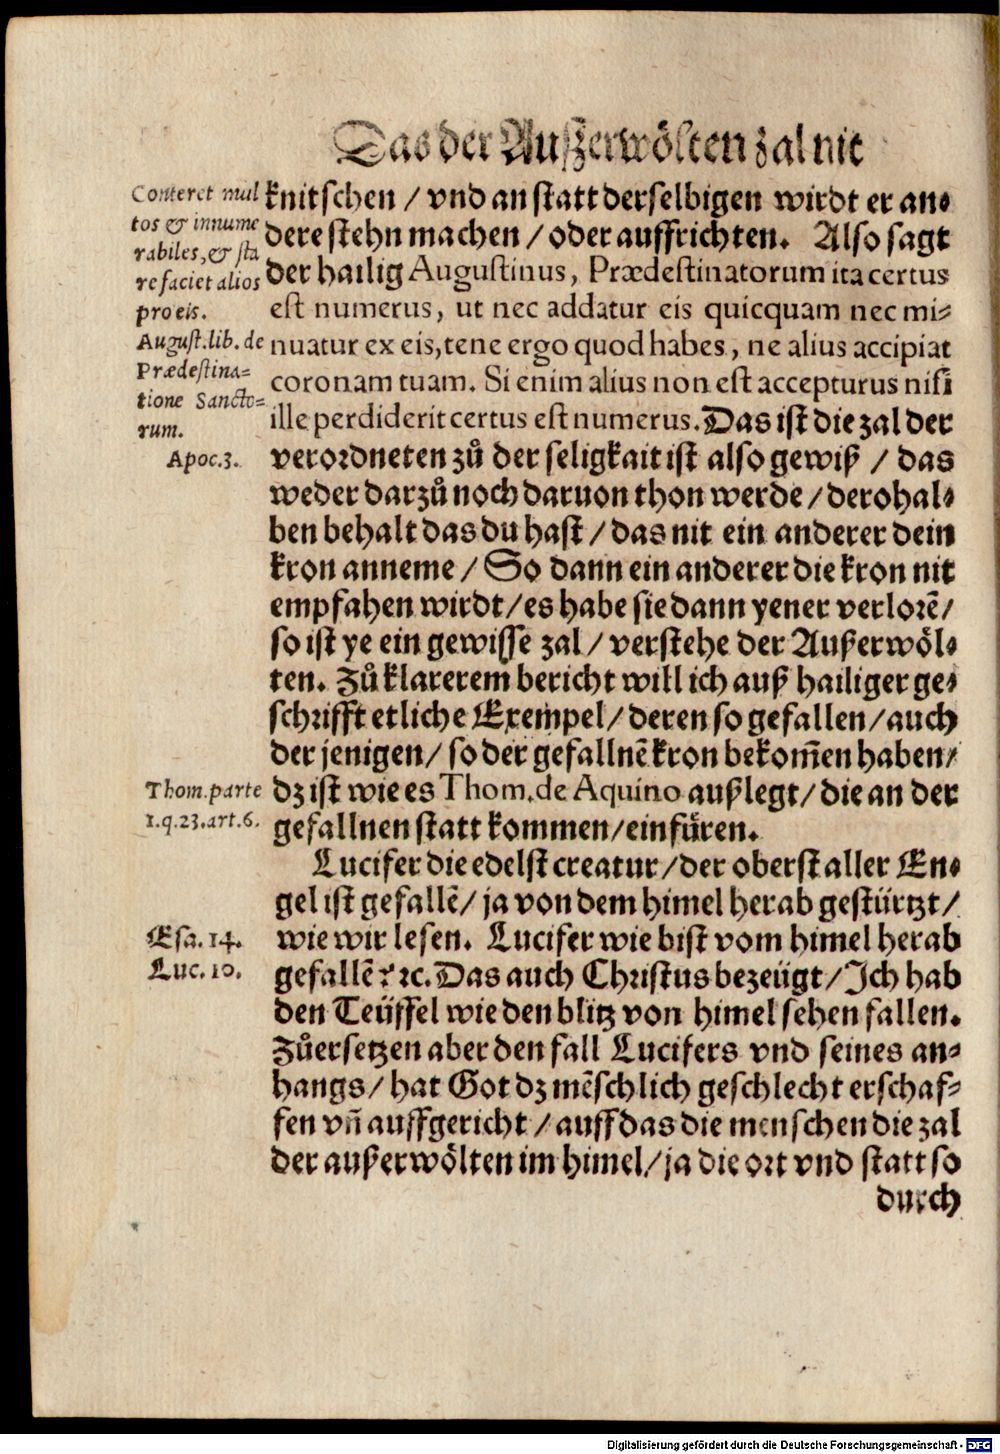 Das der Außerwölten zal nit
Conteret mul
tos & innume
rabiles, & sta
re faciet alios
pro eis.
August. lib. de
Prædestina-
tione Sancto-
rum.
Apoc. 3.
knitschen / vnd an statt derselbigen wirdt er an-
dere stehn machen / oder auffrichten. Also sagt
der hailig Augustinus, Prædestinatorum ita certus
est numerus, ut nec addatur eis quicquam nec mi-
nuatur ex eis, tene ergo quod habes, ne alius accipiat
coronam tuam. Si enim alius non est accepturus nisi
ille perdiderit certus est numerus. Das ist die zal der
verordneten zů der seligkait ist also gewiß / das
weder darzů noch daruon thon werde / derohal-
ben behalt das du hast / das nit ein anderer dein
kron anneme / So dann ein anderer die kron nit
empfahen wirdt / es habe sie dann yener verlorẽ /
so ist ye ein gewisse zal / verstehe der Außerwöl-
ten. Zů klarerem bericht will ich auß hailiger ge-
schrifft etliche Exempel / deren so gefallen / auch
der jenigen / so der gefallnẽ kron bekom̃en haben /
dz ist wie es Thom. de Aquino außlegt / die an der
gefallnen statt kommen / einfüren.
Thom. parte
1. q. 23. art. 6.
Lucifer die edelst creatur / der oberst aller En-
gel ist gefallẽ / ja von dem himel herab gestürtzt /
wie wir lesen. Lucifer wie bist vom himel herab
gefallẽ ꝛc. Das auch Christus bezeügt / Ich hab
den Teüffel wie den blitz von himel sehen fallen.
Zůersetzen aber den fall Lucifers vnd seines an-
hangs / hat Got dz mẽschlich geschlecht erschaf-
fen vñ auffgericht / auff das die menschen die zal
der außerwölten im himel / ja die ort vnd statt so
Esa. 14.
Luc. 10.
durch
Digitalisierung gefördert durch die Deutsche Forschungsgemeinschaft - DFG